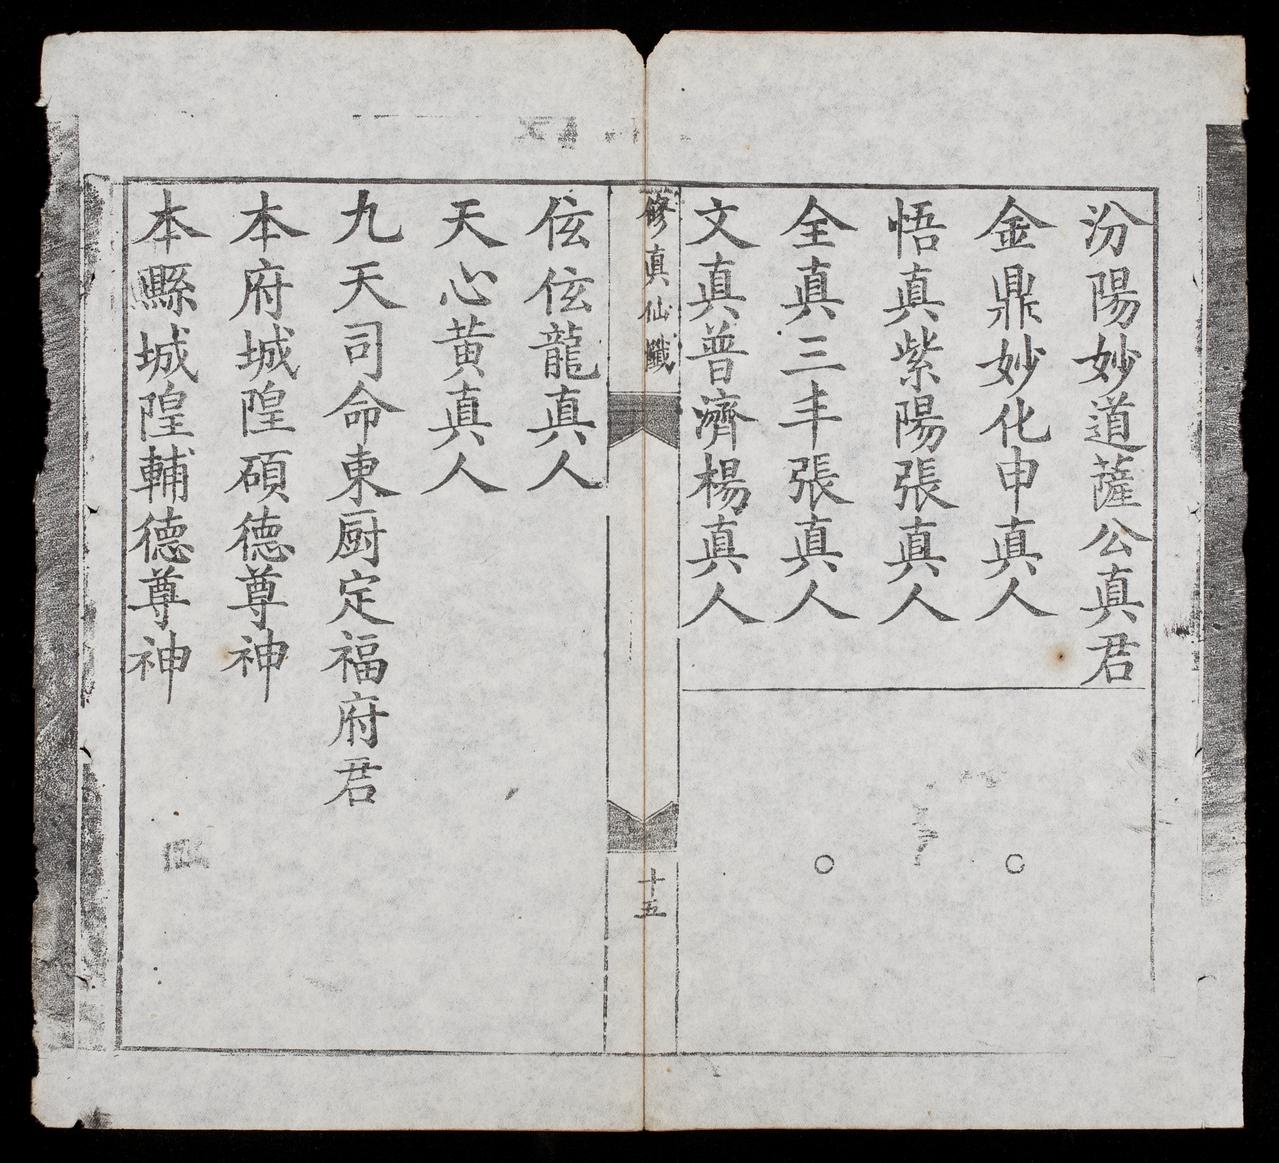 汾陽妙道薩公真君
金鼎妙化申真人
悟真紫陽張真人
全真三丰張真人
文真普濟楊真人
修真仙懺
十五
伭伭龍真人
天心黄真人
九天司命東厨定福府君
本府城隍碩德尊神
本縣城隍輔德尊神